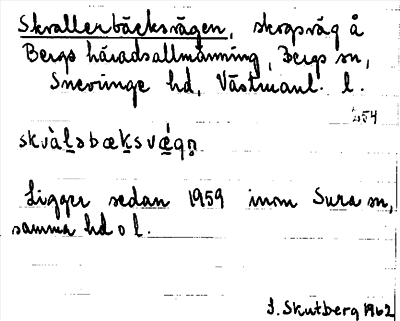 Skrallerbäcksvägen, skogsväg å
Bergs häradsallmänning, Bergs sn,
Snevringe hd, Västmanl. l.
454
skvàl̠əbæk̠svǽgn̥
Ligger sedan 1959 inom Sura sn,
samma hd o l.
I. Skutberg 1962